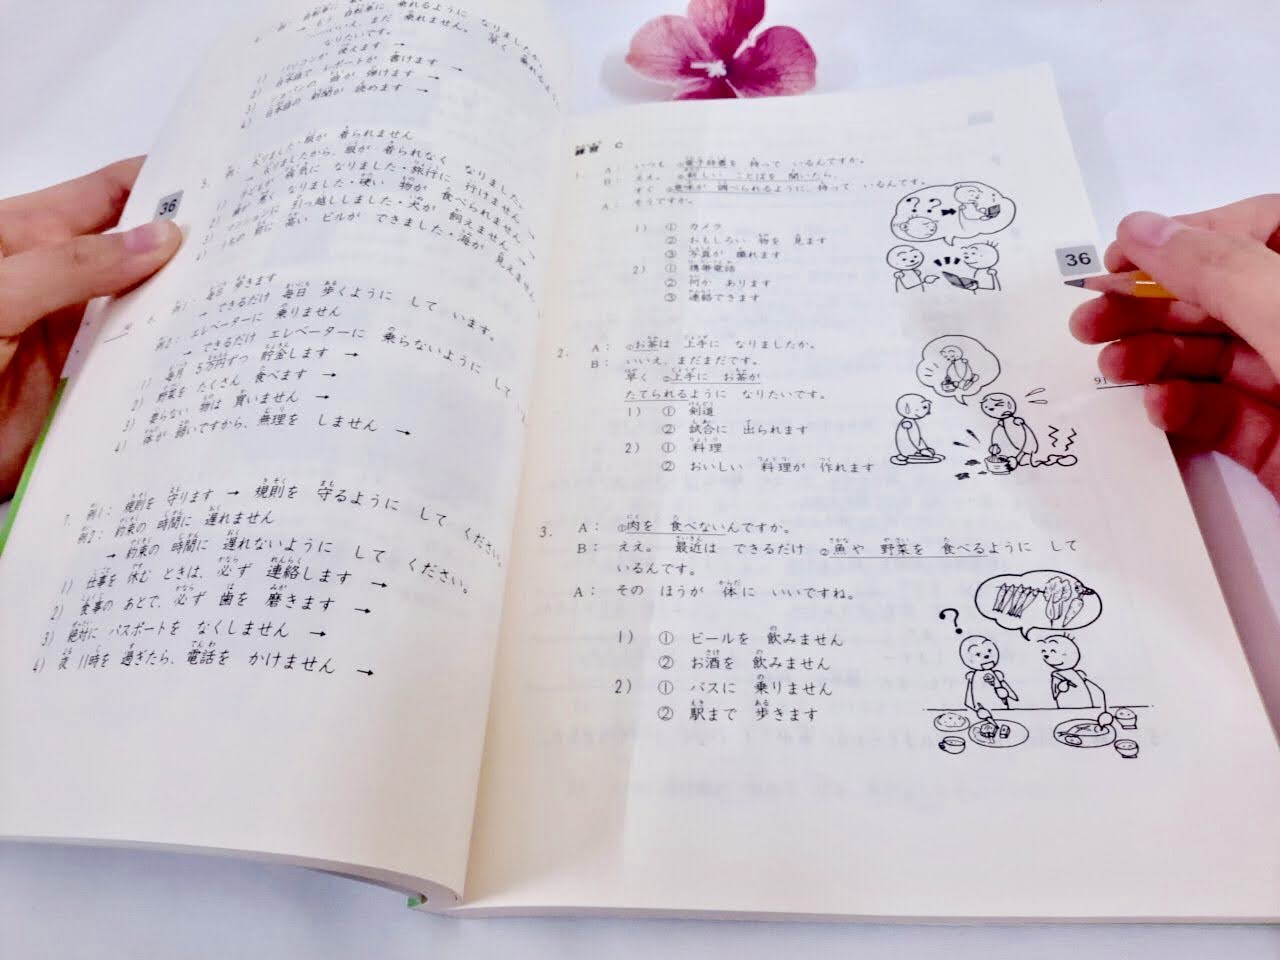 乗れるように なりましたか。
いいえ、まだ 乗れません。 早く
なりたいです。
1) パソコンが 使えます →
2) 日本語で レポートが 書けます →
3) 曲が 弾けます →
4) 日本語の 新聞が 読めます →
5. 太りました・服が 着られません
→ 太りましたから、服が 着られなく なりました。
1) 子どもが 病気に なりました・旅行に 行けません →
2) 歯が 悪く なりました・硬い 物が 食べられません →
3) マンションに 引っ越ししました・犬が 飼えません →
4) うちの 前に 高い ビルが できました・海が 見えません
36
6. 例1: 毎日 歩きます
→ できるだけ 毎日 歩くように して います。
例2: エレベーターに 乗りません
→ できるだけ エレベーターに 乗らないように して
1) 毎月 5万円ずつ 貯金します →
2) 野菜を たくさん 食べます →
3) 要らない 物は 買いません →
4) 体が 弱いですから、無理を しません →
7. 例1: 規則を 守ります → 規則を 守るように して ください。
例2: 約束の 時間に 遅れません
→ 約束の 時間に 遅れないように して ください。
1) 仕事を 休む ときは、必ず 連絡します →
2) 食事の あとで、必ず 歯を 磨きます →
3) 絶対に パスポートを なくしません →
4) 夜 11時を 過ぎたら、電話を かけません →
練習 C
1. A: いつも ①電子辞書を 持って いるんですか。
B: ええ。②新しい ことばを 聞いたら、
すぐ ③意味が 調べられるように、持って いるんです。
A: そうですか。
1) ① カメラ
② おもしろい 物を 見ます
③ 写真が 撮れます
2) ① 携帯電話
② 何か あります
③ 連絡できます
??
36
2. A: ①お茶は 上手に なりましたか。
B: いいえ、まだまだです。
早く ②上手に お茶が
たてられるように なりたいです。
1) ① 剣道
② 試合に 出られます
2) ① 料理
② おいしい 料理が 作れます
91
3. A: ①肉を 食べないんですか。
B: ええ。 最近は できるだけ ②魚や 野菜を 食べるように して
いるんです。
A: その ほうが 体に いいですね。
1) ① ビールを 飲みません
② お酒を 飲みません
2) ① バスに 乗りません
② 駅まで 歩きます
?